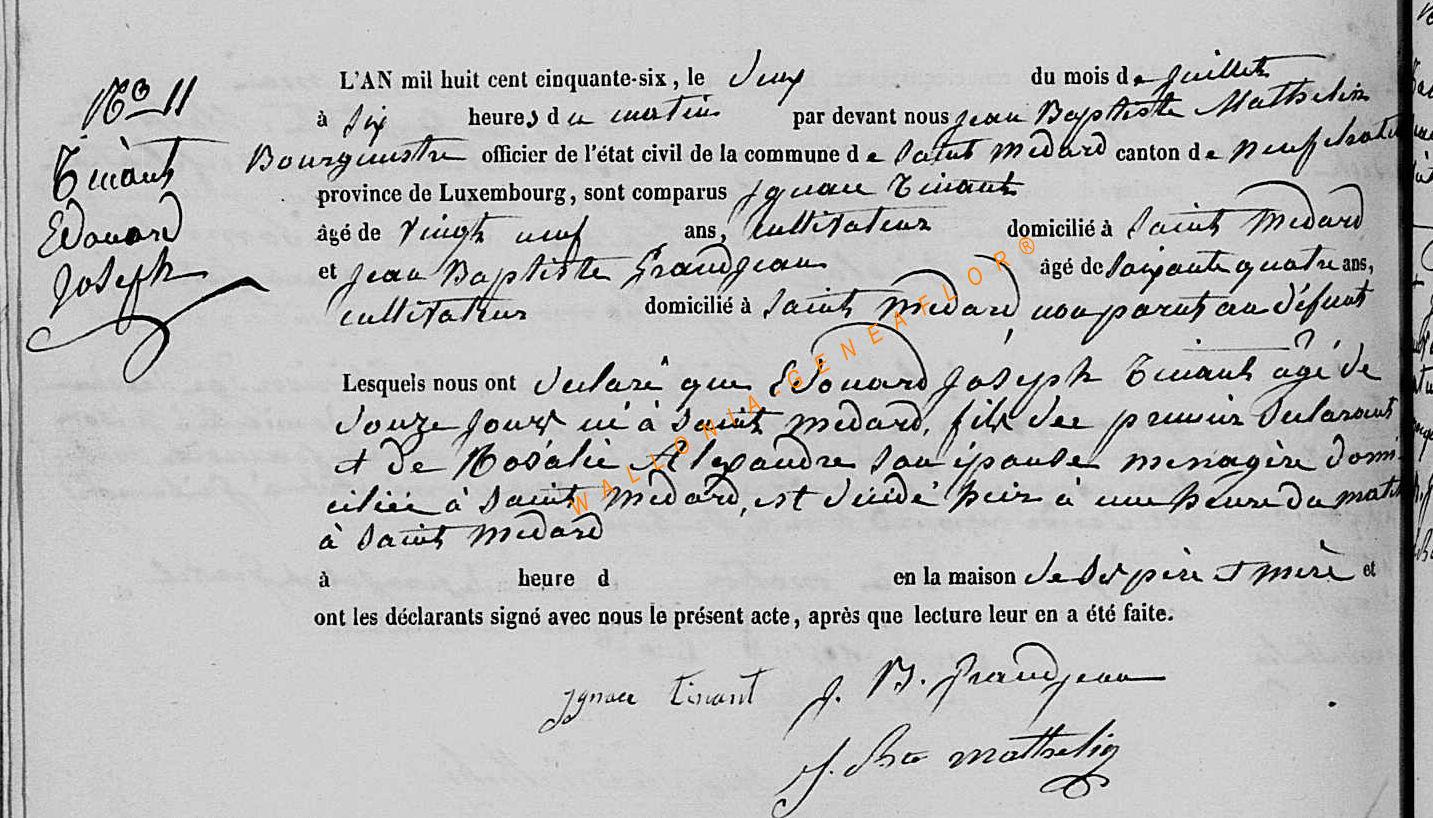 No 11
Tinant
Edouard
Joseph
L'AN mil huit cent cinquante-six, le deux du mois de Juillet
à six heures du matin par devant nous Jean Baptiste Mathelin
Bourgmestre officier de l'état civil de la commune de Saint Médard canton de Neufchateau
province de Luxembourg, sont comparus Ignace Tinant
âgé de vingt neuf ans, cultivateur domicilié à Saint Médard
et Jean Baptiste Grandjean âgé de soixante quatre ans,
cultivateur domicilié à Saint Médard, non parent au défunt
Lesquels nous ont déclaré que Edouard Joseph Tinant âgé de
douze jours né à Saint Médard, fils du premier déclarant
et de Rosalie Alexandre son épouse ménagère domi-
ciliée à Saint Médard, est décédé hier à une heure du matin
à Saint Médard
à heure d en la maison de ses père et mère et
ont les déclarants signé avec nous le présent acte, après que lecture leur en a été faite.
Ignace Tinant J. B. Grandjean
J. Bte Mathelin
WALLONIA-GENEAFLOR®